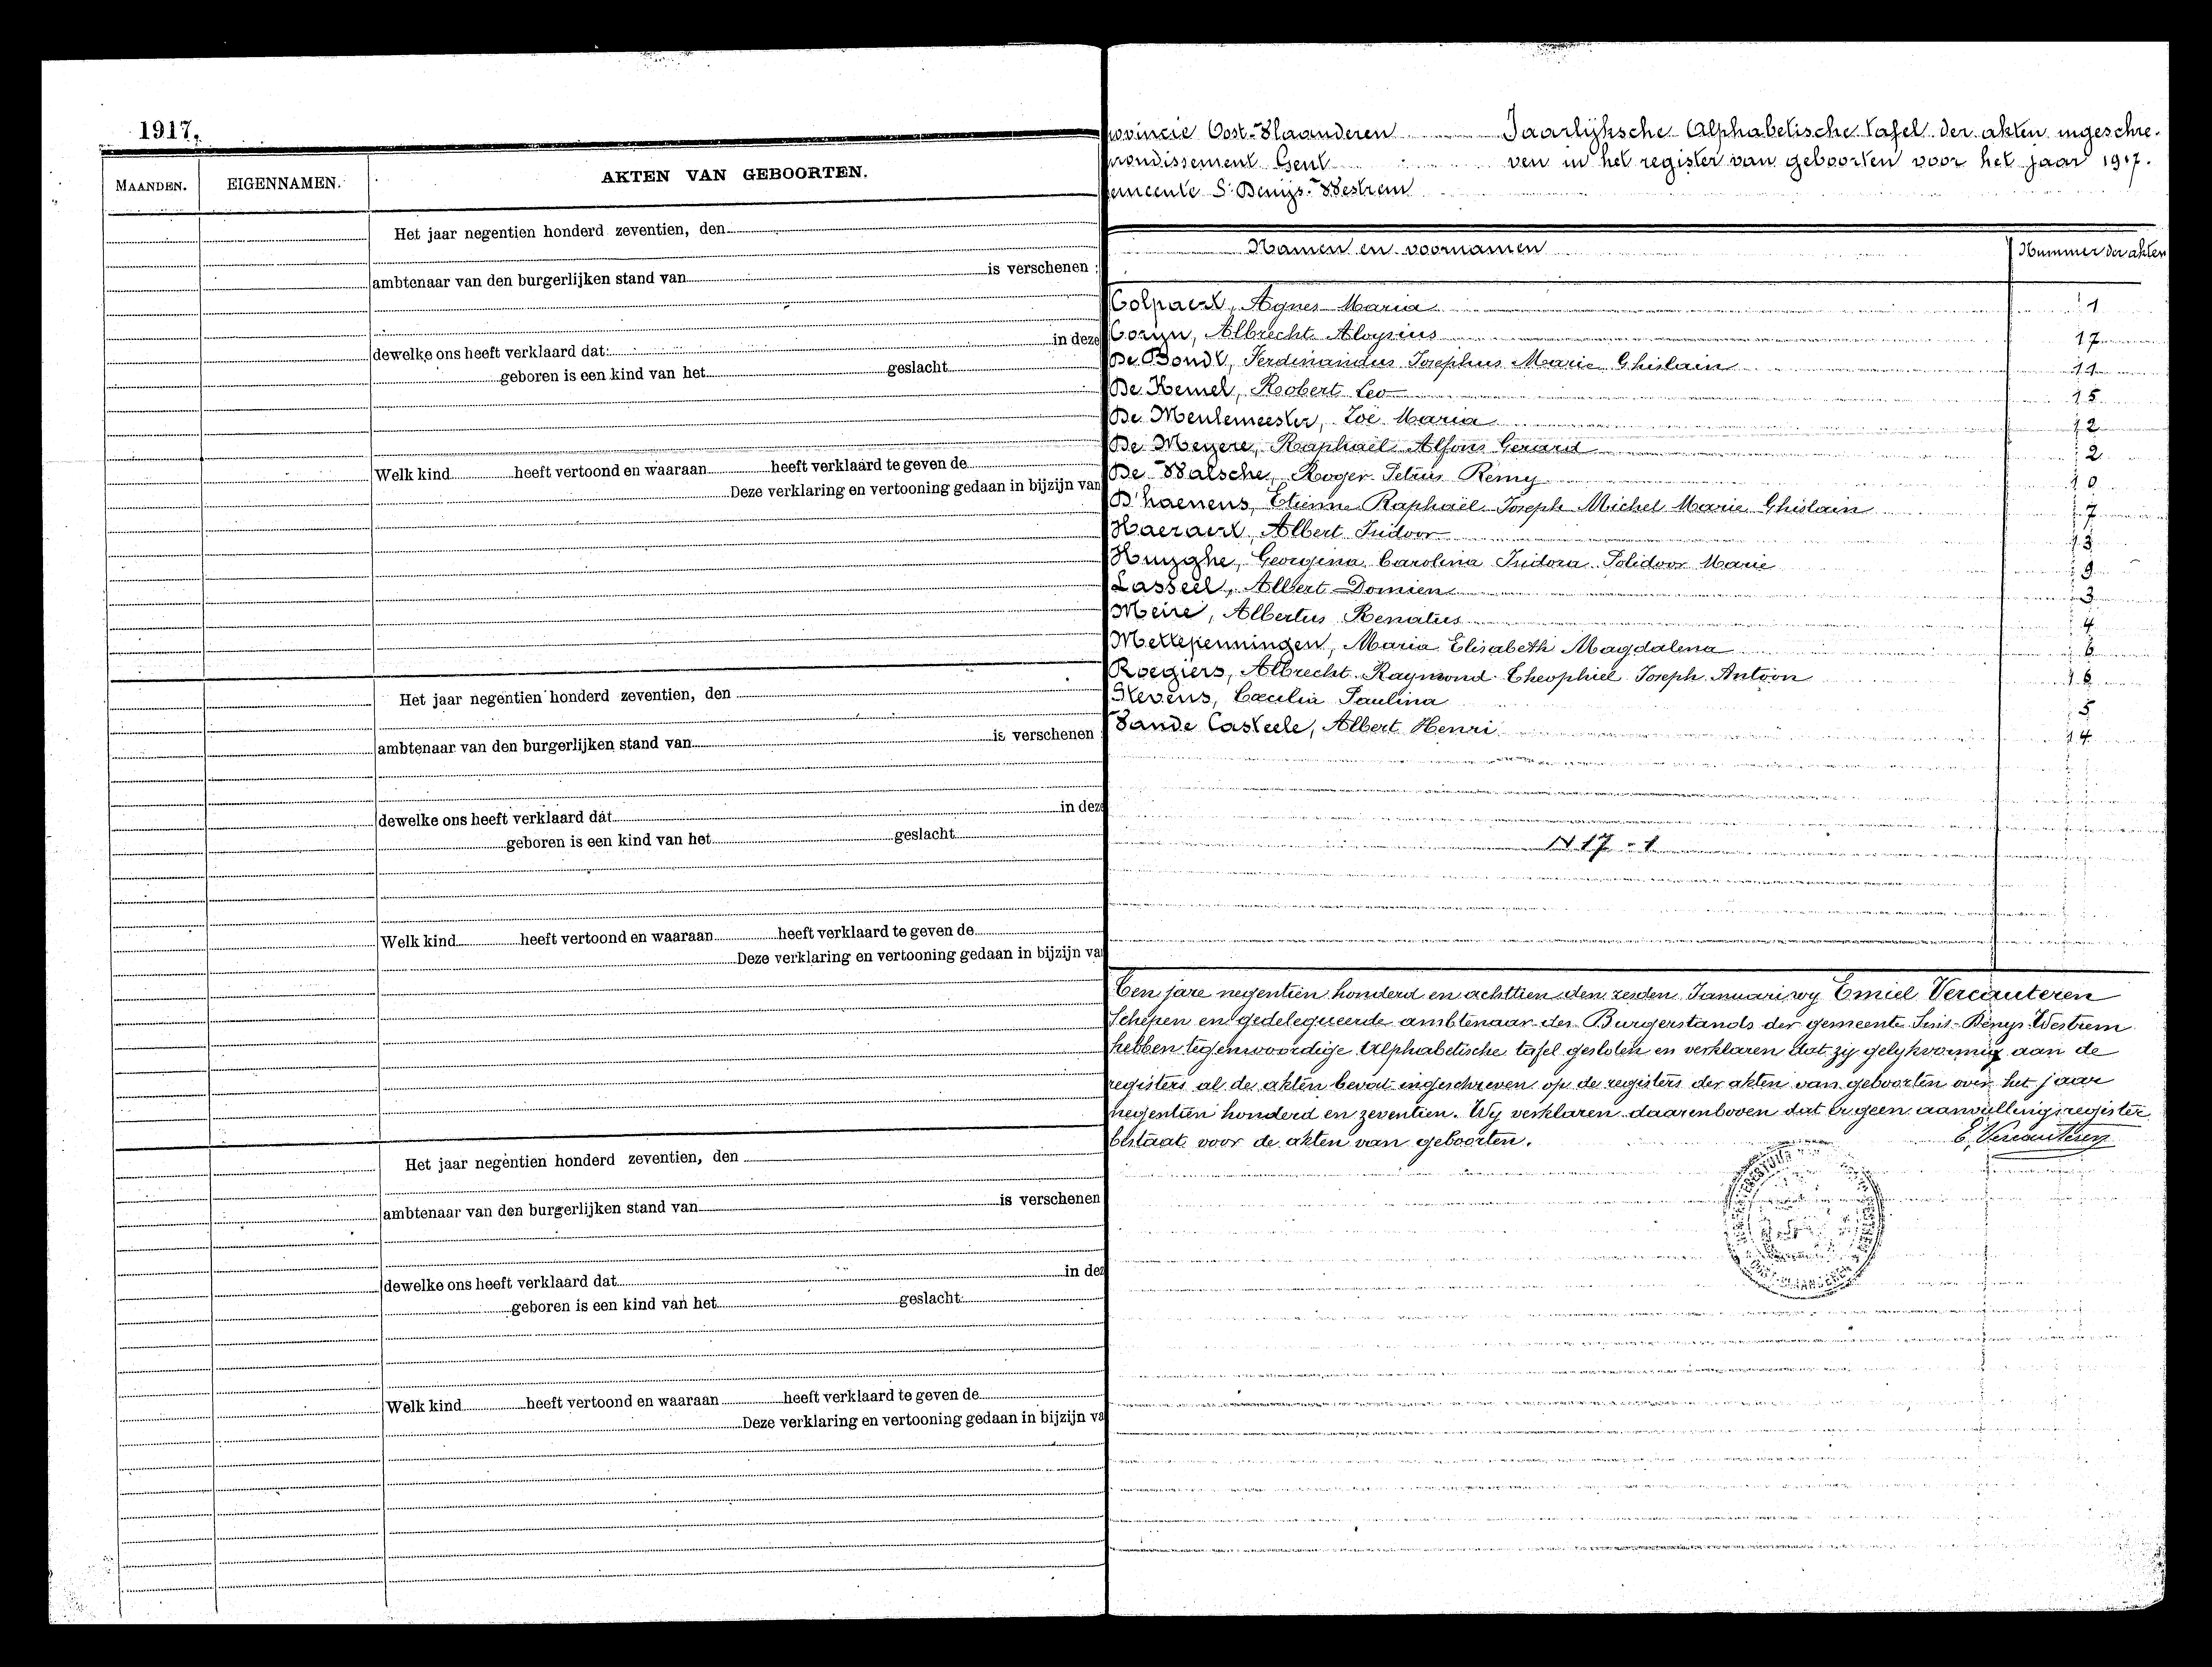 1917.
MAANDEN. EIGENNAMEN. AKTEN VAN GEBOORTEN.
Het jaar negentien honderd zeventien, den
ambtenaar van den burgerlijken stand van is verschenen :
dewelke ons heeft verklaard dat in deze
geboren is een kind van het geslacht
Welk kind heeft vertoond en waaraan heeft verklaard te geven de
Deze verklaring en vertooning gedaan in bijzijn van
Het jaar negentien honderd zeventien, den
ambtenaar van den burgerlijken stand van is verschenen :
dewelke ons heeft verklaard dat in deze
geboren is een kind van het geslacht
Welk kind heeft vertoond en waaraan heeft verklaard te geven de
Deze verklaring en vertooning gedaan in bijzijn va
Het jaar negentien honderd zeventien, den
ambtenaar van den burgerlijken stand van is verschenen
dewelke ons heeft verklaard dat in dez
geboren is een kind van het geslacht
Welk kind heeft vertoond en waaraan heeft verklaard te geven de
Deze verklaring en vertooning gedaan in bijzijn va
rovincie Oost-Vlaanderen Jaarlijksche Alphabetische Tafel der akten ingeschre-
rrondissement Gent ven in het register van geboorten voor het jaar 1917.
emeente St Denijs-Westrem
Namen en voornamen Nummer der akten
Colpaert, Agnes Maria 1
Corijn, Albrecht Aloysius 17
De Bondt, Ferdinandus Josephus Marie Ghislain 11
De Kemel, Robert Leo 15
De Meulemeester, Zoë Maria 12
De Meyere, Raphaël Alfons Gerard 2
De Walsche, Roger Petrus Remy 10
D'haenens, Etienne Raphaël Joseph Michel Marie Ghislain 7
Haeraert, Albert Isidoor 13
Huyghe, Georgina Carolina Isidora Polidoor Marie 9
Lasseel, Albert Domien 3
Meire, Albertus Renatus 4
Mettepenningen, Maria Elisabeth Magdalena 6
Roegiers, Albrecht Raymond Theophiel Joseph Antoon 16
Stevens, Cæcilia Paulina 5
Vande Casteele, Albert Henri 14
N 17 - 1
Ten jare negentien honderd en achttien den zesden Januari wy Emiel Vercauteren
Schepen en gedelegueerde ambtenaar des Burgerstands der gemeente Sint-Denys-Westrem
hebben tegenwoordige Alphabetische tafel gesloten en verklaren dat zy gelykvormig aan de
registers al de akten bevat ingeschreven op de registers der akten van geboorten over het jaar
negentien honderd en zeventien. Wy verklaren daarenboven dat er geen aanvullingsregister
bestaat voor de akten van geboorten. E. Vercauteren